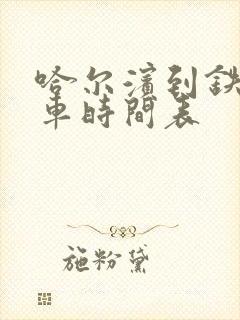 哈尔濱到鉄
車時間表
施粉黛